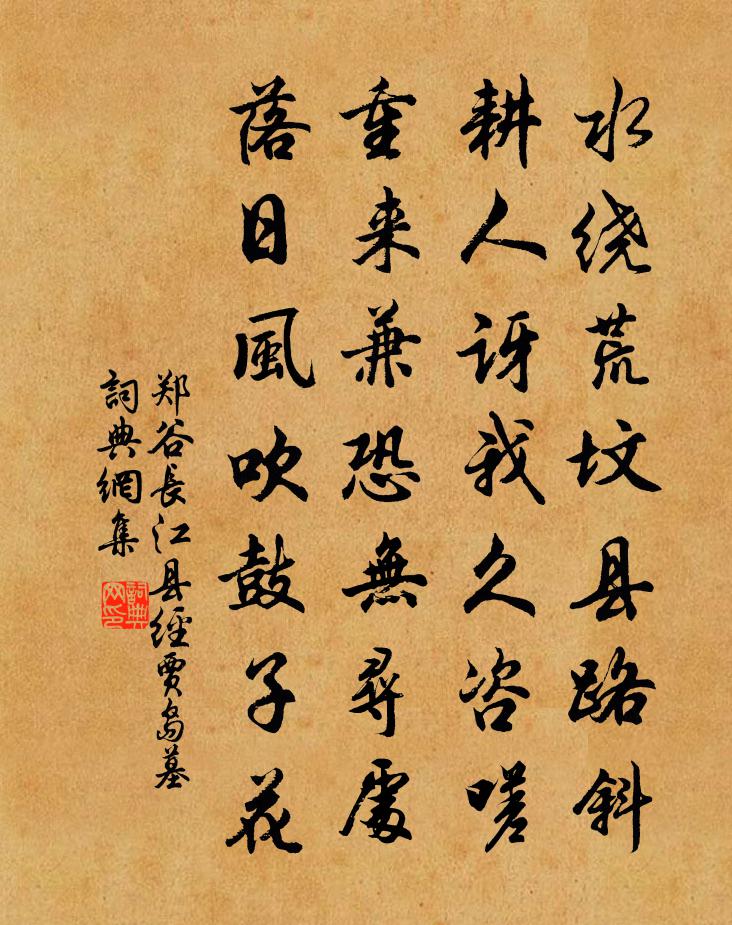 水绕荒坟县路斜
耕人讶我久咨嗟
重来兼恐無尋處
落日風吹鼓子花
郑谷長江县経贾岛墓
詞典網集
詞典
网印